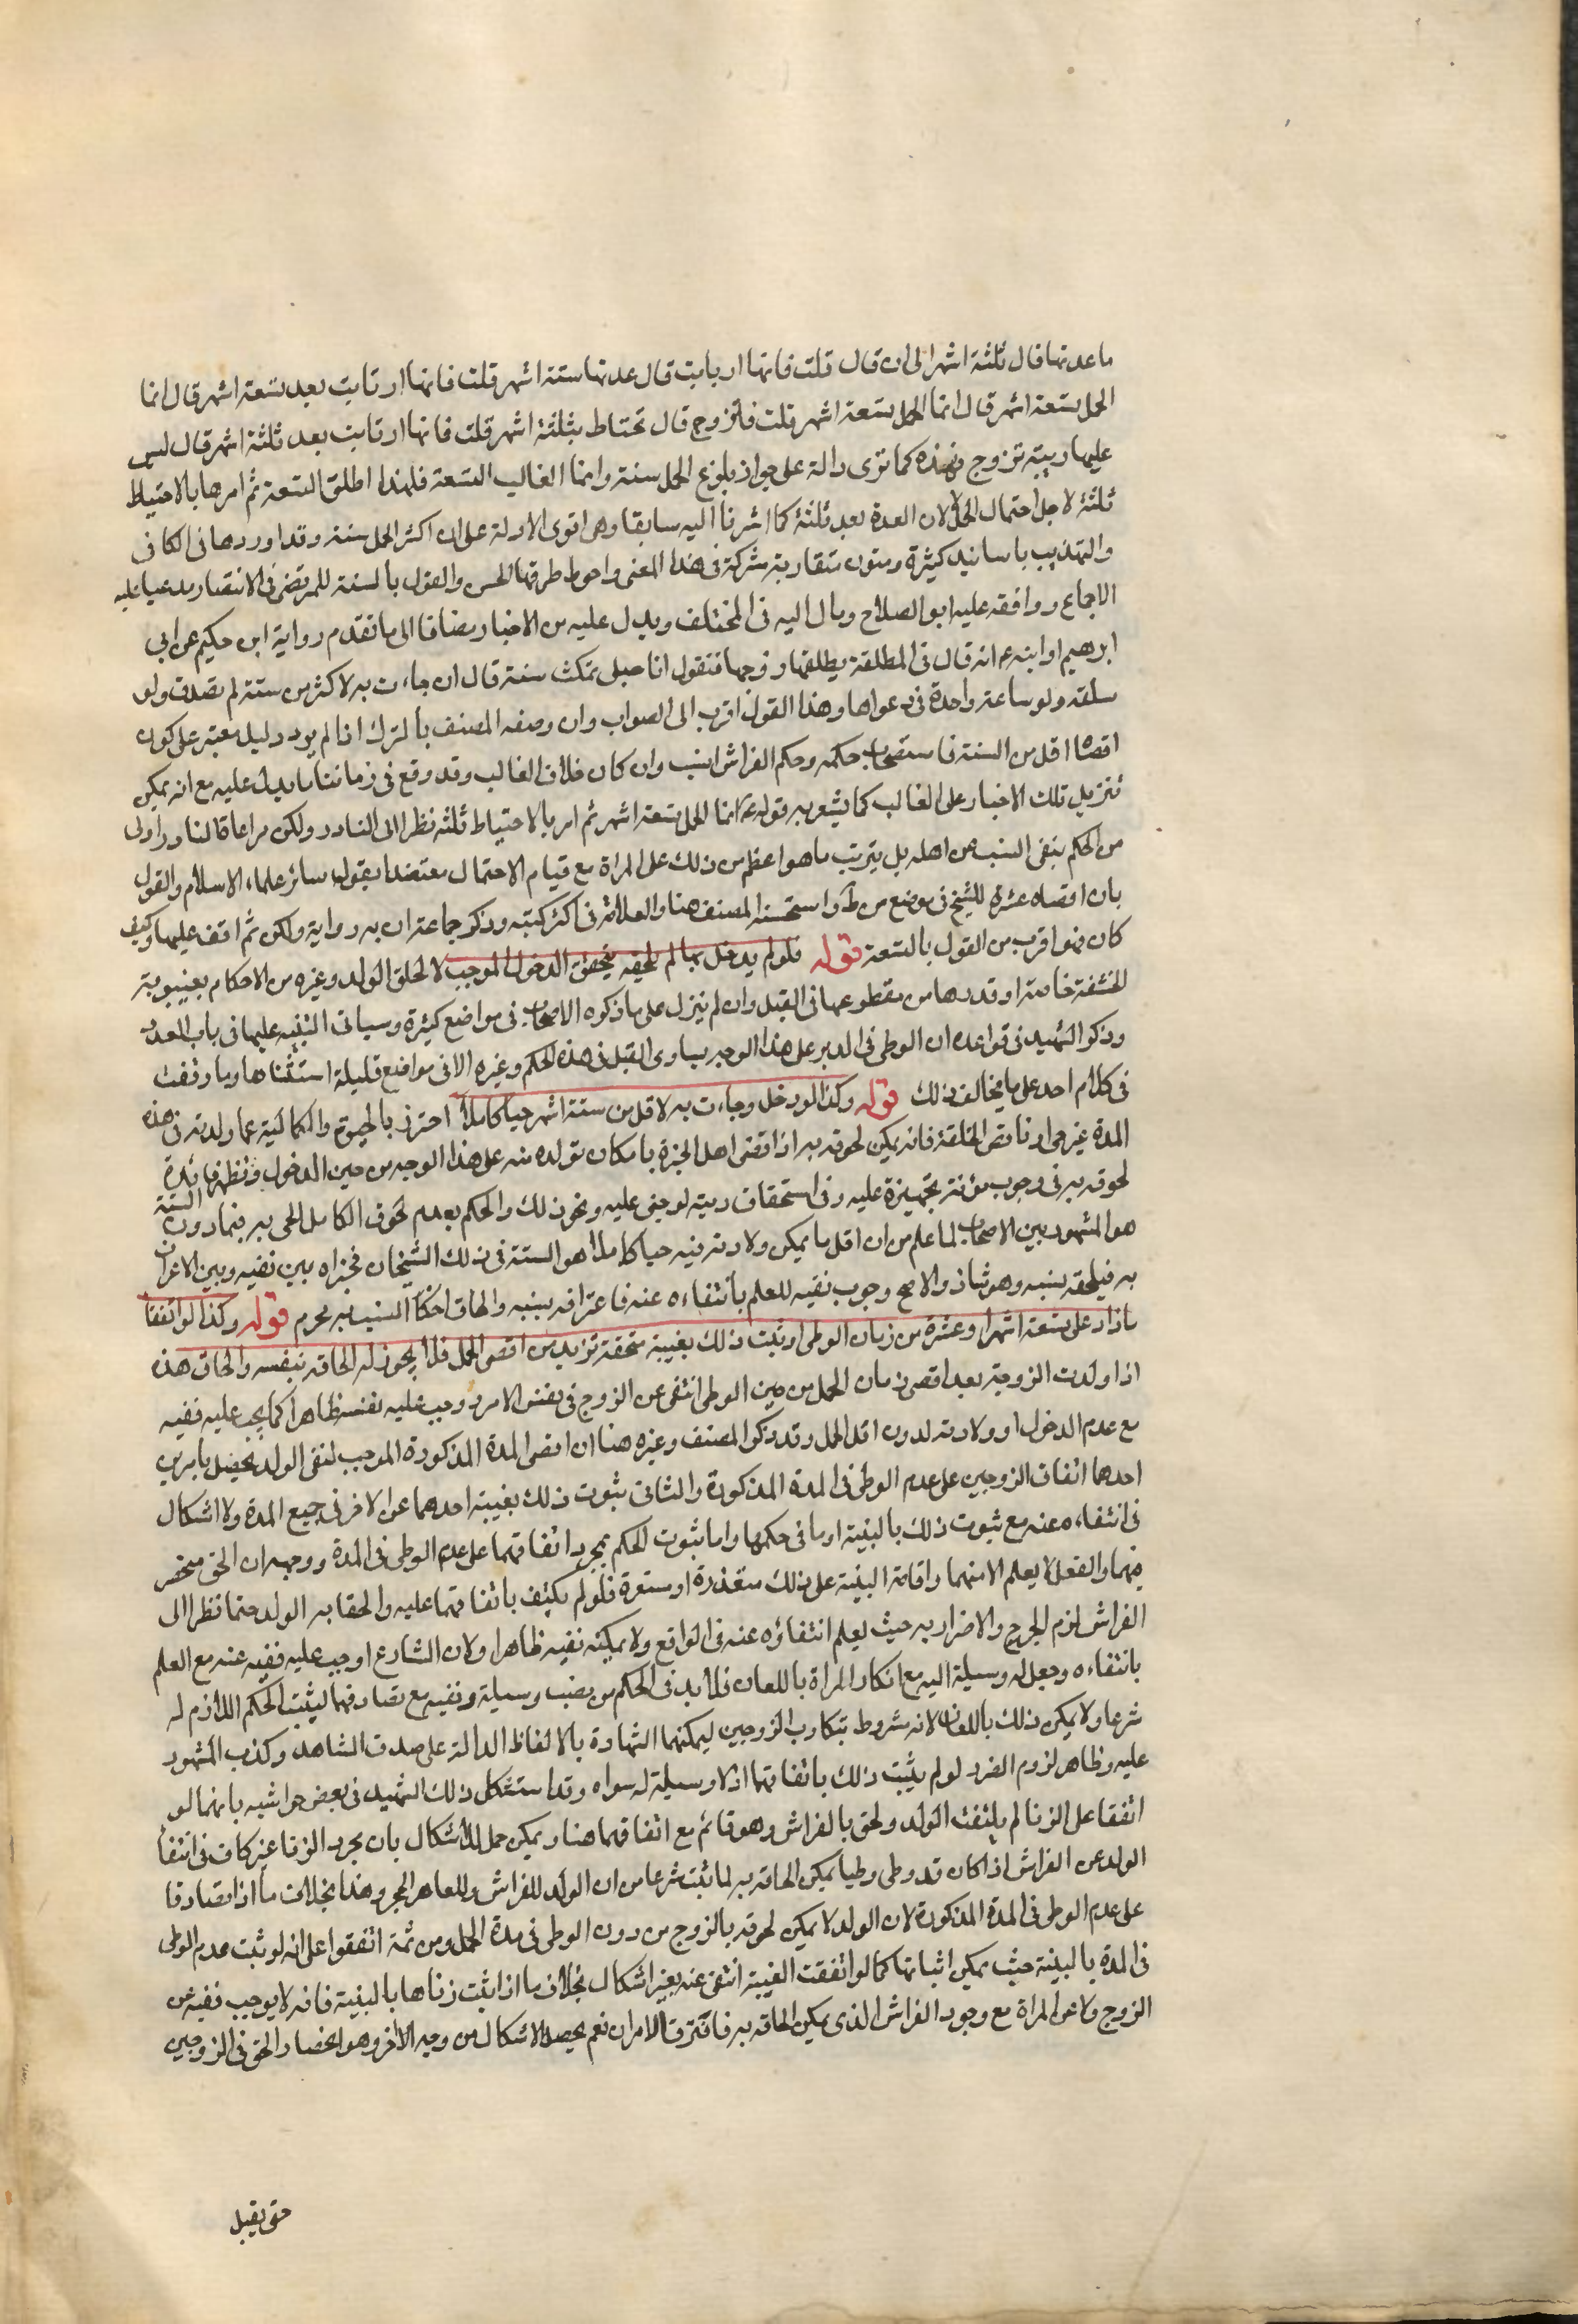 ما عدتها قال ثلثة اشهر الى ان قال قلت فانها ارتابت قال عدتها ستة اشهر قلت فانها ارتابت بعد تسعة اشهر قال انما
الحمل تسعة اشهر قال انما الحمل تسعة اشهر قلت فتزوج قال تحتاط بثلثة اشهر قلت فانها ارتابت بعد ثلثة اشهر قال ليس
عليها ريبة تزوج فهذه كما ترى دالة على جواز بلوغ الحمل سنة وانما الغالب التسعة فلهذا اطلق التسعة ثم امرها بالاحتياط
ثلثة لاجل احتمال الحمل لان العدة بعد ثلثة كما اشرنا اليه سابقا وهى اقوى الادلة على ان اكثر الحمل سنة وقد اوردها فى الكافى
والتهذيب باسانيد كثيرة ومتون متقاربة مشركة فى هذا المعنى واحوط طرقها الحسن والقول بالسنة للمرتضى فى الانتصار مدعيا عليه
الاجماع ووافقه عليه ابو الصلاح ومال اليه فى المختلف ويدل عليه من الاخبار مضافا الى ما تقدم رواية ابن حكيم عن ابي
ابرهيم او ابنه ع انه قال فى المطلقة يطلقها زوجها فتقول انا حبلى تمكث سنة قال ان جاءت به لاكثر من سنة لم تصدق ولو
ساعة واحدة فى دعواها وهذا القول اقرب الى الصواب وان وصفه المصنف بالترك اذ لم يرد دليل معتبر على كون
اقصاه اقل من السنة فاستصحاب حكمه وحكم الفراش انسب وان كان خلاف الغالب وقد وقع فى زماننا ما يدل عليه مع انه يمكن
تنزيل تلك الاخبار على الغالب كما يشعر به قوله ع انما الحمل تسعة اشهر ثم امر بالاحتياط ثلثة نظرا الى النادر ولكن مراعاة النادر اولى
من الحكم بنفى النسب عن اهله بل يترتب ما هو اعظم من ذلك على المراة مع قيام الاحتمال معتضدا بقول سائر علماء الاسلام والقول
بان اقصاه عشرة للشيخ فى موضع من ط واستحسنه المصنف هنا والعلامة فى اكثر كتبه وذكر جماعة ان به رواية ولكن ثم اقف عليها وكيف
كان فهو اقرب من القول بالتسعة قوله فلو لم يدخل بها لم يلحقه يتحقق الدخول الموجب لالحاق الولد وغيره من الاحكام بغيبوبة
الحشفة خاصة او قدرها من مقطوعها فى القبل وان لم ينزل على ما ذكره الاصحاب فى مواضع كثيرة وسياتى التنبيه عليها فى باب العدد
وذكر الشهيد فى قواعده ان الوطى فى الدبر على هذا الوجه يساوى القبل فى هذه الحكم وغيره الا فى مواضع قليلة استثناها وما وقفت
فى كلام احد على ما يخالف ذلك قوله وكذا لو دخل وجاءت به لاقل من ستة اشهر حيا كاملا احترز بالحيوة والكمالية عما ولدته فى هذه
المدة غير حى او ناقص الخلقة فانه يمكن لحوقه به اذا قضى اهل الخبرة بامكان تولده منه على هذا الوجه من حين الدخول وتظهر فائدة
لحوقه به فى وجوب مؤنة تجهيزه عليه وفى استحقاق ديته لو جنى عليه ونحو ذلك والحكم بعدم لحوق الكامل الحى به فيما دون الستة
هو المشهور بين الاصحاب لما علم من ان اقل ما يمكن ولادته فيه حيا كاملا هو الستة فى ذلك الشيخان فخيراه بين نفيه وبين الاعتراف
به فيلحقه بنسبه وهو شاذ والاصح وجوب نفيه للعلم بانتفاءه عنه فاعترافه بنسبه والحاق احكام النسب به محرم قوله وكذا لو اتفقا
ما زاد على تسعة اشهر او عشرة من زمان الوطى او ثبت ذلك بغيبة متحققة تزيد من اقصى الحمل فلا يجوز له الحاقه بنفسه والحال هذه
اذا ولدت الزوجة بعد اقصى زمان الحمل من حين الوطى انتفى عن الزوج فى نفس الامر ووجب عليه نفيه ظاهرا كما يجب عليه نفيه
مع عدم الدخول او ولادته لدون اقل الحمل وقد ذكر المصنف وغيره هنا ان اقصى المدة المذكورة الموجب لنفى الولد يحصل بامرين
احدهما اتفاق الزوجين على عدم الوطى فى المدة المذكورة والثانى ثبوت ذلك بغيبة احدهما عن الاخر فى جميع المدة ولا اشكال
فى انتفاءه عنه مع ثبوت ذلك بالبينة او ما فى حكمها واما ثبوت الحكم بمجرد اتفاقهما على عدم الوطى فى المدة ووجهه ان الحق منحصر
فيهما والفعل لا يعلم الا منهما واقامة البينة على ذلك متعذرة او متعسرة فلو لم يكتف باتفاقهما عليه والحقنا به الولد حتما نظرا الى
الفراش لزم الحرج والاضرار به حيث يعلم انتفاؤه عنه فى الواقع ولا يمكنه نفيه ظاهرا ولان الشارع اوجب عليه نفيه عنه مع العلم
بانتفاءه وجعل له وسيلة اليه مع انكار المراة باللعان فلا بد فى الحكم من نصب وسيلة ونفيه مع تصادقهما ليثبت الحكم اللازم له
شرعا ولا يمكن ذلك باللعان لانه مشروط بتكاذب الزوجين ليمكنهما الشهادة بالالفاظ الدالة على صدق الشاهد وكذب المشهود
عليه وظاهر لزوم الضرر لو لم يثبت ذلك باتفاقهما اذ لا وسيلة له سواه وقد استشكل ذلك الشهيد فى بعض حواشيه بانهما لو
اتفقا على الزنا لم يلتفت الولد ولحق بالفراش وهو قائم مع اتفاقهما هنا ويمكن حمل الاشكال بان مجرد الزنا غير كاف فى انتفا
الولد عن الفراش اذا كان قد وطى وطيا يمكن الحاقه به لما ثبت شرعا من ان الولد للفراش وللعاهر الحجر وهذا بخلاف ما اذا تصادقا
على عدم الوطى فى المدة المذكورة لان الولد لا يمكن لحوقه بالزوج من دون الوطى فى مدة الحمل ومن ثمة اتفقوا على انه لو ثبت عدم الوطى
فى المدة بالبينة حيث يمكن اثباتها كما لو اتفقت الغيبة انتفى عنه بغير اشكال بخلاف ما اذا ثبت زناها بالبينة فانه لا يوجب نفيه عن
الزوج ولا عن المراة مع وجود الفراش الذى يمكن الحاقه به فافترق الامران نعم يحصل الاشكال من وجه الاخر وهو انحصار الحق فى الزوجين
حتى يقبل